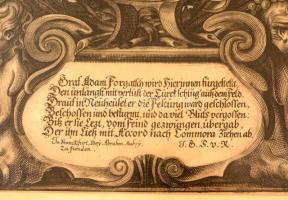 Graf Adam Forgatsch wird Hierinnen fürgestelt.
Den unlängst mit verlust der Türck schlug auß dem feld.
Drauf in Neüheüsel er die Festung ward geschlossen,
beschossen und bestürmt, und da viel Bluts vergossen:
Biß er sie Lezt, vom feind gezwungen, übergab,
Der ihn Ließ mit Accord nach Commora Ziehen ab.
In Franckfurt, Bey Abraham Aubry,
Zu finden.
J. B. F. v. R.